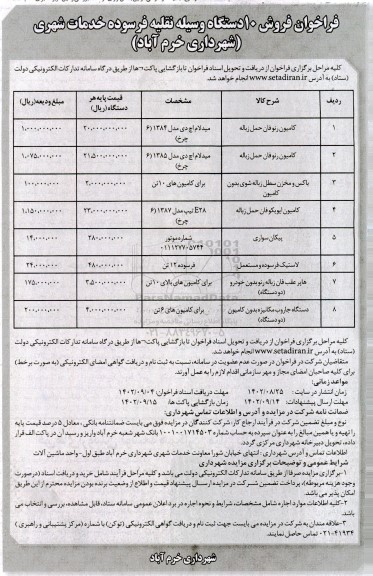 فراخوان فروش ۱۰دستگاه وسیله نقلیه فرسوده خدمات شهری
(شهرداری خرم آباد)
کلیه مراحل برگزاری فراخوان از دریافت و تحویل اسناد فراخوان تا بازگشایی پاکت ها از طریق درگاه سامانه تدارکات الکترونیکی دولت
(ستاد) به آدرس www.setadiran.ir انجام خواهد شد.
ردیف شرح کالا مشخصات قیمت پایه هر دستگاه(ریال) مبلغ ودیعه(ریال)
۱ کامیون رنو فان حمل زباله میدلام اچ دی مدل ۱۳۸۴ (۶ چرخ) ۲۰،۰۰۰،۰۰۰،۰۰۰ ۱،۰۰۰،۰۰۰،۰۰۰
۲ کامیون رنو فان حمل زباله میدلام اچ دی مدل ۱۳۸۵ (۶ چرخ) ۲۱،۵۰۰،۰۰۰،۰۰۰ ۱،۰۷۵،۰۰۰،۰۰۰
۳ باکس و مخزن سطل زباله شوی بدون کامیون برای کامیون های ۱۰تن ۲،۰۰۰،۰۰۰،۰۰۰ ۱۰۰،۰۰۰،۰۰۰
۴ کامیون ایویکو فان حمل زباله E28 تیپ مدل ۱۳۸۷ (۶ چرخ) ۲۳،۰۰۰،۰۰۰،۰۰۰ ۱،۱۵۰،۰۰۰،۰۰۰
۵ پیکان سواری شماره موتور ۰۱۱۲۷۷۰۵۷۴۴ ۲۸۰،۰۰۰،۰۰۰ ۱۴،۰۰۰،۰۰۰
۶ لاستیک فرسوده و مستعمل فرسوده ۱۲ تن ۴۸۰،۰۰۰،۰۰۰ ۲۴،۰۰۰،۰۰۰
۷ هایر عقب فان زباله رنو بدون خودرو (دو دستگاه) برای کامیون های بالای ۱۰تن ۳،۵۰۰،۰۰۰،۰۰۰ ۱۷۵،۰۰۰،۰۰۰
۸ دستگاه جاروب مکانیزه بدون کامیون (دو دستگاه) برای کامیون های ۶تن ۴،۰۰۰،۰۰۰،۰۰۰ ۲۰۰،۰۰۰،۰۰۰
کلیه مراحل برگزاری فراخوان از دریافت و تحویل اسناد فراخوان تا بازگشایی پاکت ها از طریق درگاه سامانه تدارکات الکترونیکی دولت
(ستاد) به آدرس www.setadiran.ir انجام خواهد شد.
متقاضیان شرکت در فراخوان در صورت عدم عضویت در سامانه، نسبت به ثبت نام و دریافت گواهی امضای الکترونیکی (به صورت برخط)
برای کلیه صاحبان امضای مجاز و مهر سازمانی اقدام لازم را به عمل آورند.
مواعد زمانی:
زمان انتشار در سایت: ۱۴۰۲/۰۸/۲۵ مهلت دریافت اسناد فراخوان: ۱۴۰۲/۰۹/۰۴
مهلت ارسال پیشنهادات: ۱۴۰۲/۰۹/۱۴ زمان بازگشایی پاکت ها: ۱۴۰۲/۰۹/۱۵
ضمانت نامه شرکت در مزایده و آدرس و اطلاعات تماس شهرداری.
نوع و مبلغ تضمین شرکت در فرآیند ارجاع کار: شرکت کنندگان در مزایده فوق می بایست ضمانتنامه بانکی، معادل ۵ درصد قیمت پایه
را تهیه و یا همین مبالغ را به عنوان سپرده به حساب شماره ۱۰۰۱۰۰۱۷۱۴۵۰۳ بانک شهر شعبه خرم آباد واریز و رسید آن در پاکت الف قرار
داده، تحویل دبیرخانه شهرداری مرکزی گردد.
اطلاعات تماس و آدرس شهرداری: انتهای خیابان شورا معاونت خدمات شهری شهرداری خرم آباد طبق اول- واحد ماشین آلات
شرایط عمومی و توضیحات برگزاری مزایده شهرداری
۱-برگزاری مزایده صرفا از طریق سامانه تدارکات الکترونیکی دولت می باشد و کلیه مراحل فرآیند شامل خرید و دریافت اسناد (درصورت
وجود هزینه مربوطه)، پرداخت تضمین شرکت در مزایده ارسال پیشنهاد قیمت و اطلاع از وضعیت برنده بودن مزایده محترم از این طریق
امکان پذیر می باشد.
۲-کلیه اطلاعات موارد اجاره شامل مشخصات، شرایط و نحوه اجاره در برد اعلان عمومی سامانه ستاد، قابل مشاهده، بررسی و انتخاب می
باشد.
۳-علاقه مندان به شرکت در مزایده می بایست جهت ثبت نام و دریافت گواهی الکترونیکی (توکن) با شماره (مرکز پشتیبانی و راهبری)
۰۲۱-۴۱۹۳۴ تماس حاصل نمایند.
شهرداری خرم آباد